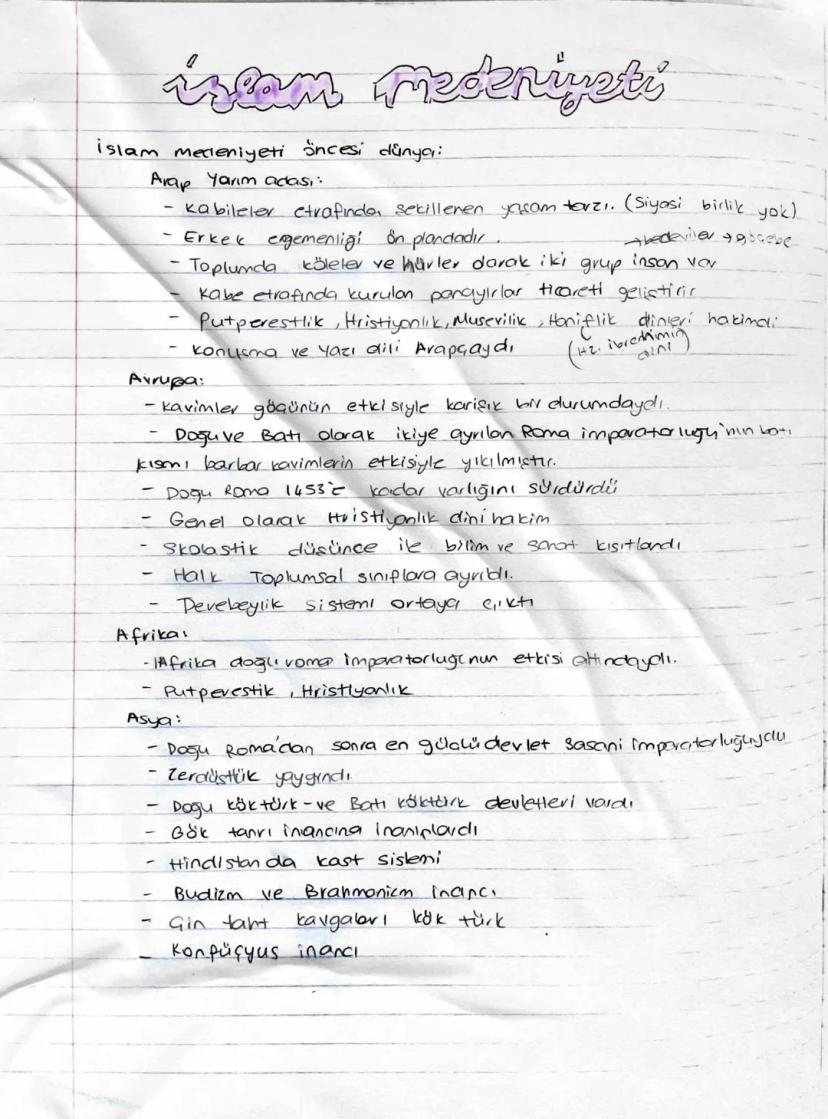 islam medeniyeti
islam medeniyeti öncesi dünya:
Arap Yarım adası:
- Kabileler etrafında şekillenen yaşam tarzı. (Siyasi birlik yok)
- Erkek egemenliği ön plandadır. →bedeviler →göçebe
- Toplumda köleler ve hürler olarak iki grup insan var
- Kabe etrafında kurulan panayırlar ticareti geliştirir
- Putperestlik, Hristiyanlık, Musevilik, Haniflik dinleri hakimdi
- Konuşma ve Yazı dili Arapçaydı (Hz. ibrahimin dini)
Avrupa:
- Kavimler göçünün etkisiyle karışık bir durumdaydı.
- Doğu ve Batı olarak ikiye ayrılan Roma imparatorluğu'nın batı
kısmı barbar kavimlerin etkisiyle yıkılmıştır.
- Doğu Roma 1453'e kadar varlığını sürdürdü
- Genel olarak Hristiyanlık dini hakim
- Skolastik düşünce ile bilim ve sanat kısıtlandı
- Halk Toplumsal sınıflara ayrıldı.
- Derebeylik sistemi ortaya çıktı
Afrika:
- Afrika doğu roma imparatorluğunun etkisi altındaydı.
- Putperestik, Hristiyanlık
Asya:
- Doğu Roma'dan sonra en güçlü devlet Sasani imparatorluğuydu
- Zerdüştlük yaygındı.
- Doğu köktürk-ve Batı köktürk devletleri vardı
- Gök tanrı inancına inanıplardı
- Hindistan da kast sistemi
- Budizm ve Brahmanizm inancı
- Çin taht kavgaları kök türk
- Konfüçyus inancı